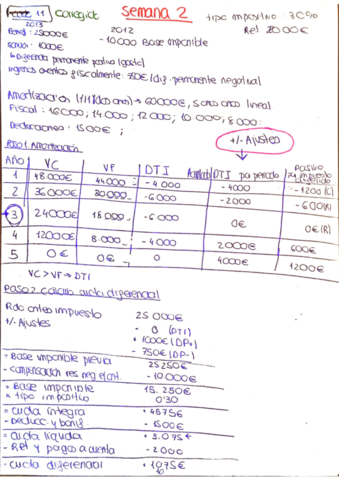 11 corregida Semana 2 tipo impositivo 30%
2013 2012 Ret 2000€
Bond: 25000€ - 10000 Base imponible
sanción: 1000€
↳ Diferencia permanente positiva (gasto)
ingresos exentos fiscalmente: 750€ (dif. permanente negativa)
Amortización (1/1/ ) → 60000€, 5 años lineal
Fiscal: 16000; 14000; 12000; 10000; 8000.
Deducciones: 1500€;
+/- Ajustes
Paso 1 Amortización
AÑO VC VF DTI DTI por periodo Pasivo por impuesto
1 48000€ 44000 - 4000 - 4000 - 1200 (C)
2 36000€ 30000 - 6000 - 2000 - 600 (R)
3 24000€ 18000 - 6000 0€ 0€ (R)
4 12000€ 8.000 - 4000 2000€ 600€
5 0€ 0€ 0 4000€ 1200€
VC > VF → DTI
Paso 2 cálculo cuota diferencial
Rdo antes impuesto 25 000€
+/- Ajustes - 0 (DTI)
+ 1000€ (DP+)
- 750€ (DP-)
= Base imponible previa 25250€
- compensación res neg ant. - 10.000€
= Base imponible 15.250€
x tipo impositivo 0'30
= cuota íntegra + 4575€
- Deducc y bonif. - 1500€
= cuota líquida + 3.075€
- Ret y pagos a cuenta - 2000
- cuota diferencial + 1075€